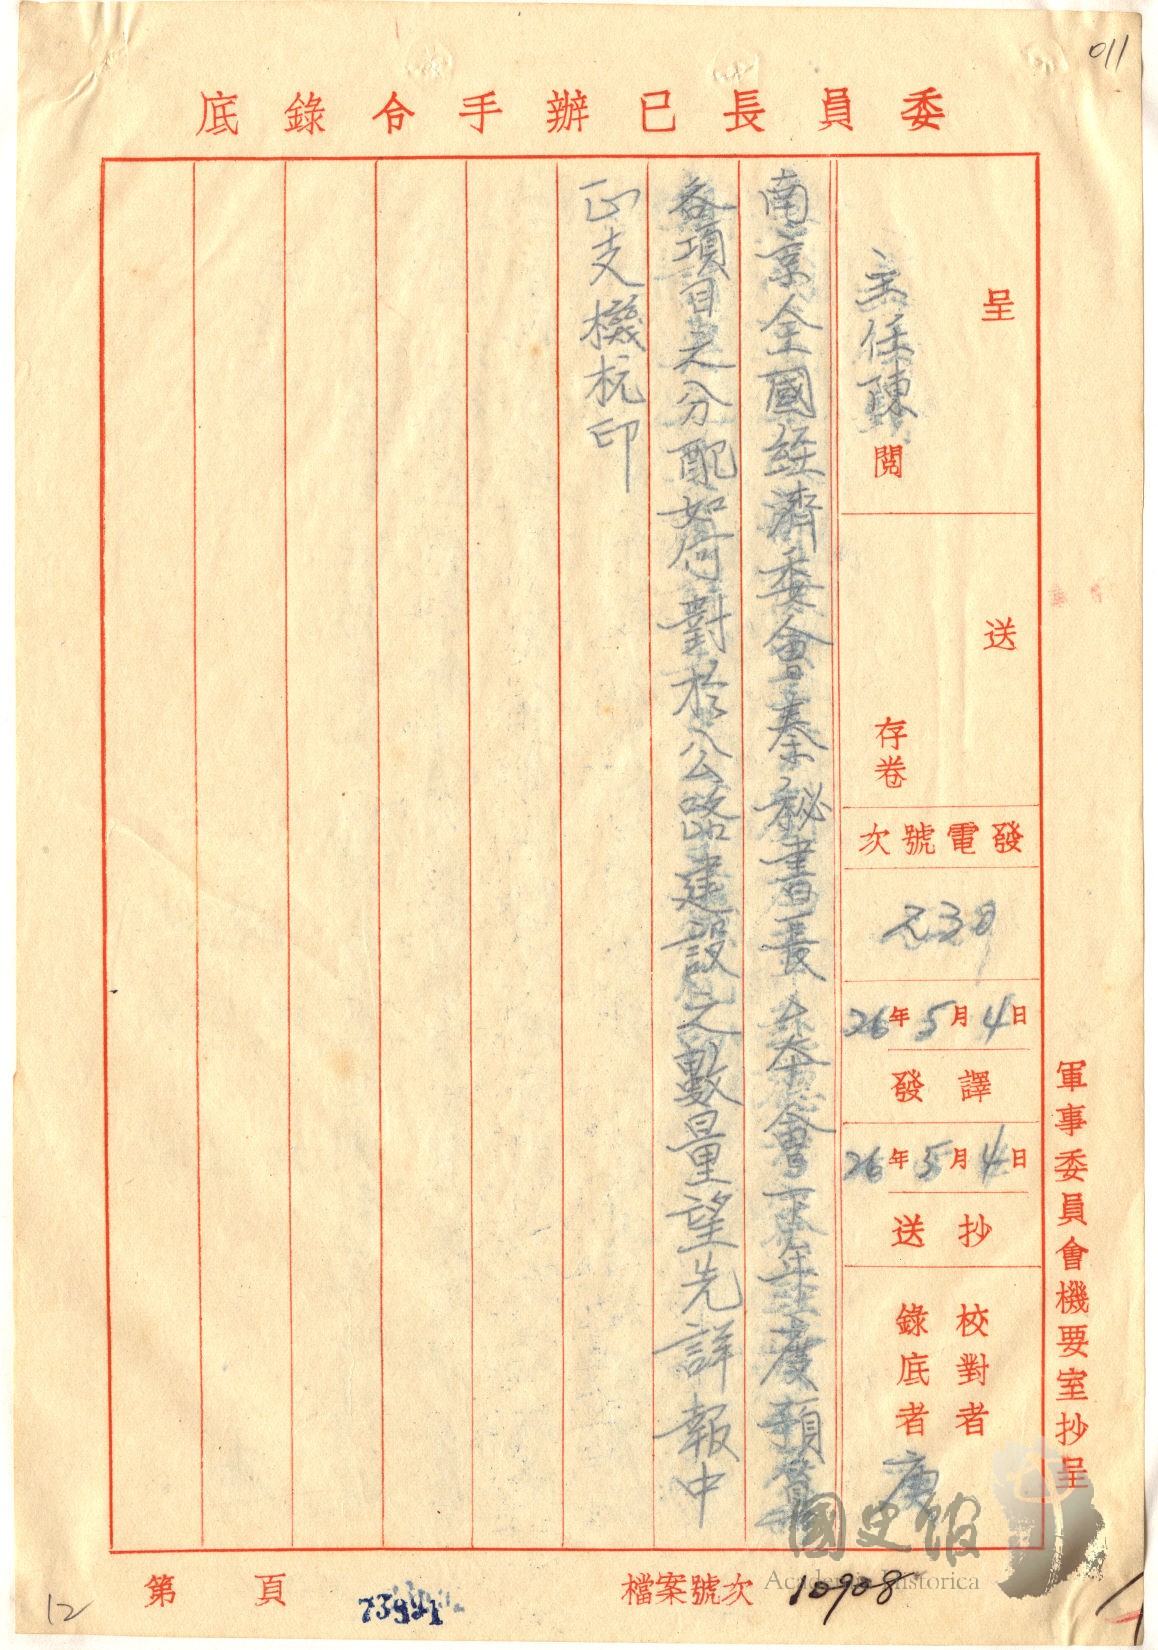 011
委員長已辦手令錄底
呈
主任陳
閱
送
存卷
發電號次
26年5月4日
譯發
26年5月4日
抄送
校對者
錄底者
軍事委員會機要室抄呈
南京全國經濟委會秦秘書長 本會下年度預算
各項目之分配如何對於公路建設之數量望先詳報中
正支機杭印
第 頁
檔案號次 10908
國史館
Academia Historica
12